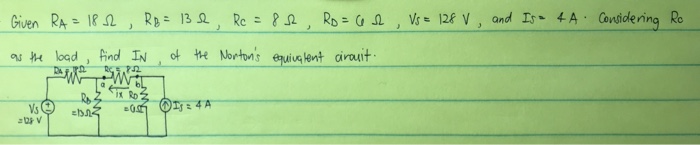 Given RA = 18 Ω , RB = 13 Ω , Rc = 8 Ω , RD = 6 Ω , Vs = 128 V , and Is = 4 A . Considering Rc
as the load , find IN , of the Norton's equivalent circuit.
a b
Ix RD
Vs
Is = 4 A